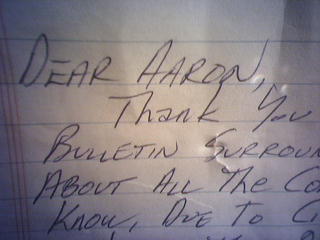 DEAR AARON,
Thank You
BULLETIN SURROUN
ABOUT ALL THE CO
KNOW, DUE TO CI